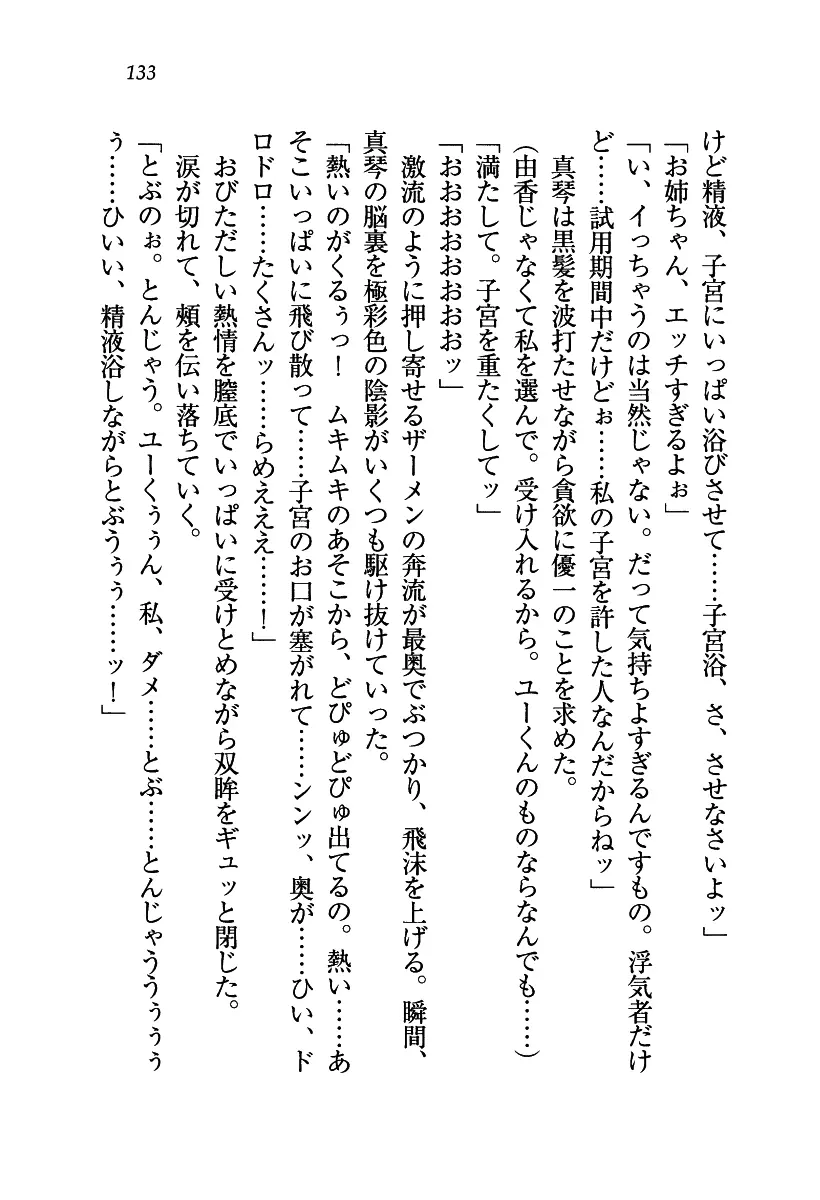 133
けど精液、子宮にいっぱい浴びさせて……子宮浴、さ、させなさいよッ」
「お姉ちゃん、エッチすぎるよぉ」
「い、イっちゃうのは当然じゃない。だって気持ちよすぎるんですもの。浮気者だけ
ど……試用期間中だけどぉ……私の子宮を許した人なんだからねッ」
真琴は黒髪を波打たせながら貪欲に優一のことを求めた。
(由香じゃなくて私を選んで。受け入れるから。ユーくんのものならなんでも……)
「満たして。子宮を重たくしてッ」
「おおおおおおおおッ」
激流のように押し寄せるザーメンの奔流が最奥でぶつかり、飛沫を上げる。瞬間、
真琴の脳裏を極彩色の陰影がいくつも駆け抜けていった。
「熱いのがくるぅっ！　ムキムキのあそこから、どぴゅどぴゅ出てるの。熱い……あ
そこいっぱいに飛び散って……子宮のお口が塞がれて……ンンッ、奥が……ひい、ド
ロドロ……たくさんッ……らめえええ……！」
おびただしい熱情を膣底でいっぱいに受けとめながら双眸をギュッと閉じた。
涙が切れて、頰を伝い落ちていく。
「とぶのぉ。とんじゃう。ユーくぅぅん、私、ダメ……とぶ……とんじゃううぅぅぅ
ぅ……ひいい、精液浴しながらとぶうぅぅ……ッ！」